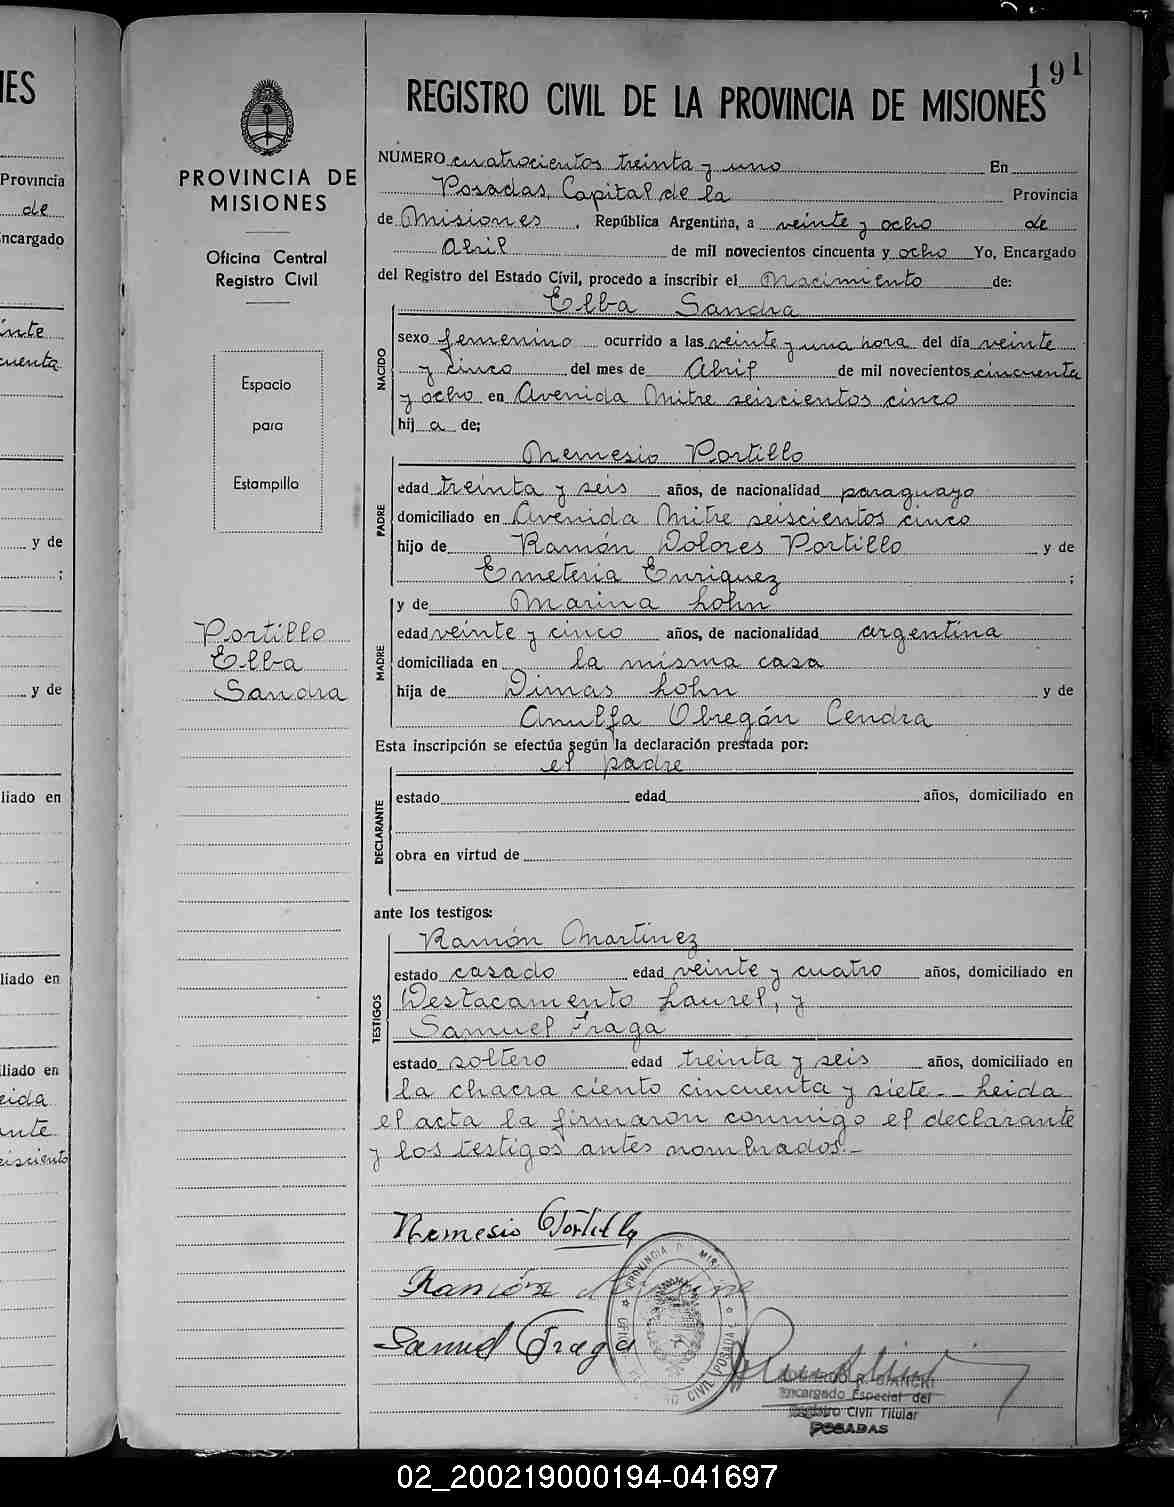 IES
Provincia
de
ncargado
inte
cuenta
y de
;
y de
liado en
liado en
liado en
eida
ante
eisciento
PROVINCIA DE
MISIONES
Oficina Central
Registro Civil
Espacio
para
Estampilla
Portillo
Elba
Sandra
191
REGISTRO CIVIL DE LA PROVINCIA DE MISIONES
NÚMERO cuatrocientos treinta y uno En
Posadas, Capital de la Provincia
de Misiones, República Argentina, a veinte y ocho de
Abril de mil novecientos cincuenta y ocho Yo, Encargado
del Registro del Estado Civil, procedo a inscribir el Nacimiento de:
Elba Sandra
NACIDO
sexo femenino ocurrido a las veinte y una hora del día veinte
y cinco del mes de Abril de mil novecientos cincuenta
y ocho en Avenida Mitre seiscientos cinco
hij a de;
Nemesio Portillo
PADRE
edad treinta y seis años, de nacionalidad paraguayo
domiciliado en Avenida Mitre seiscientos cinco
hijo de Ramón Dolores Portillo y de
Emeteria Enriquez ;
y de Marina Lohn
MADRE
edad veinte y cinco años, de nacionalidad argentina
domiciliada en la misma casa
hija de Dimas Lohn y de
Anulfa Obregón Cendra
Esta inscripción se efectúa según la declaración prestada por:
el padre
DECLARANTE
estado edad años, domiciliado en
obra en virtud de
ante los testigos:
Ramón Martinez
TESTIGOS
estado casado edad veinte y cuatro años, domiciliado en
Destacamento Laurel, y
Samuel Fraga
estado soltero edad treinta y seis años, domiciliado en
la chacra ciento cincuenta y siete.- Leida
el acta la firmaron conmigo el declarante
y los testigos antes nombrados.-
Nemesio Portillo
Ramón
Samuel Fraga
PROVINCIA D MIS
CIVIL (POSADA
R. BIANCHI
Encargado Especial del
Registro Civil Titular
POSADAS
02_200219000194-041697